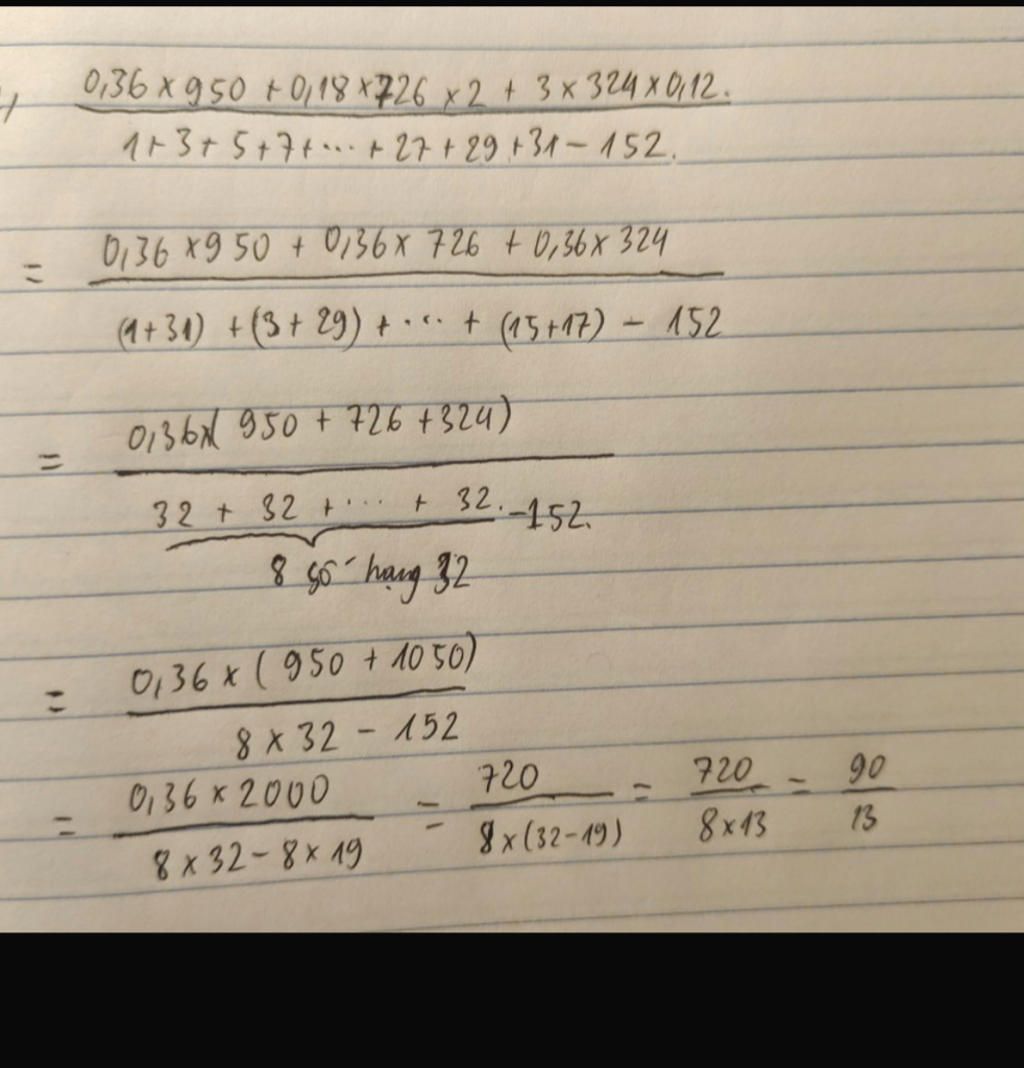 0,36 × 950 + 0,18 × 726 × 2 + 3 × 324 × 0,12.
1 + 3 + 5 + 7 + ... + 27 + 29 + 31 - 152.
= 0,36 × 950 + 0,36 × 726 + 0,36 × 324
(1 + 31) + (3 + 29) + ... + (15 + 17) - 152
= 0,36 × ( 950 + 726 + 324)
32 + 32 + ... + 32. - 152.
8 số hạng 32
= 0,36 × ( 950 + 1050)
8 × 32 - 152
= 0,36 × 2000 = 720 = 720 = 90
8 × 32 - 8 × 19 8 × (32 - 19) 8 × 13 13